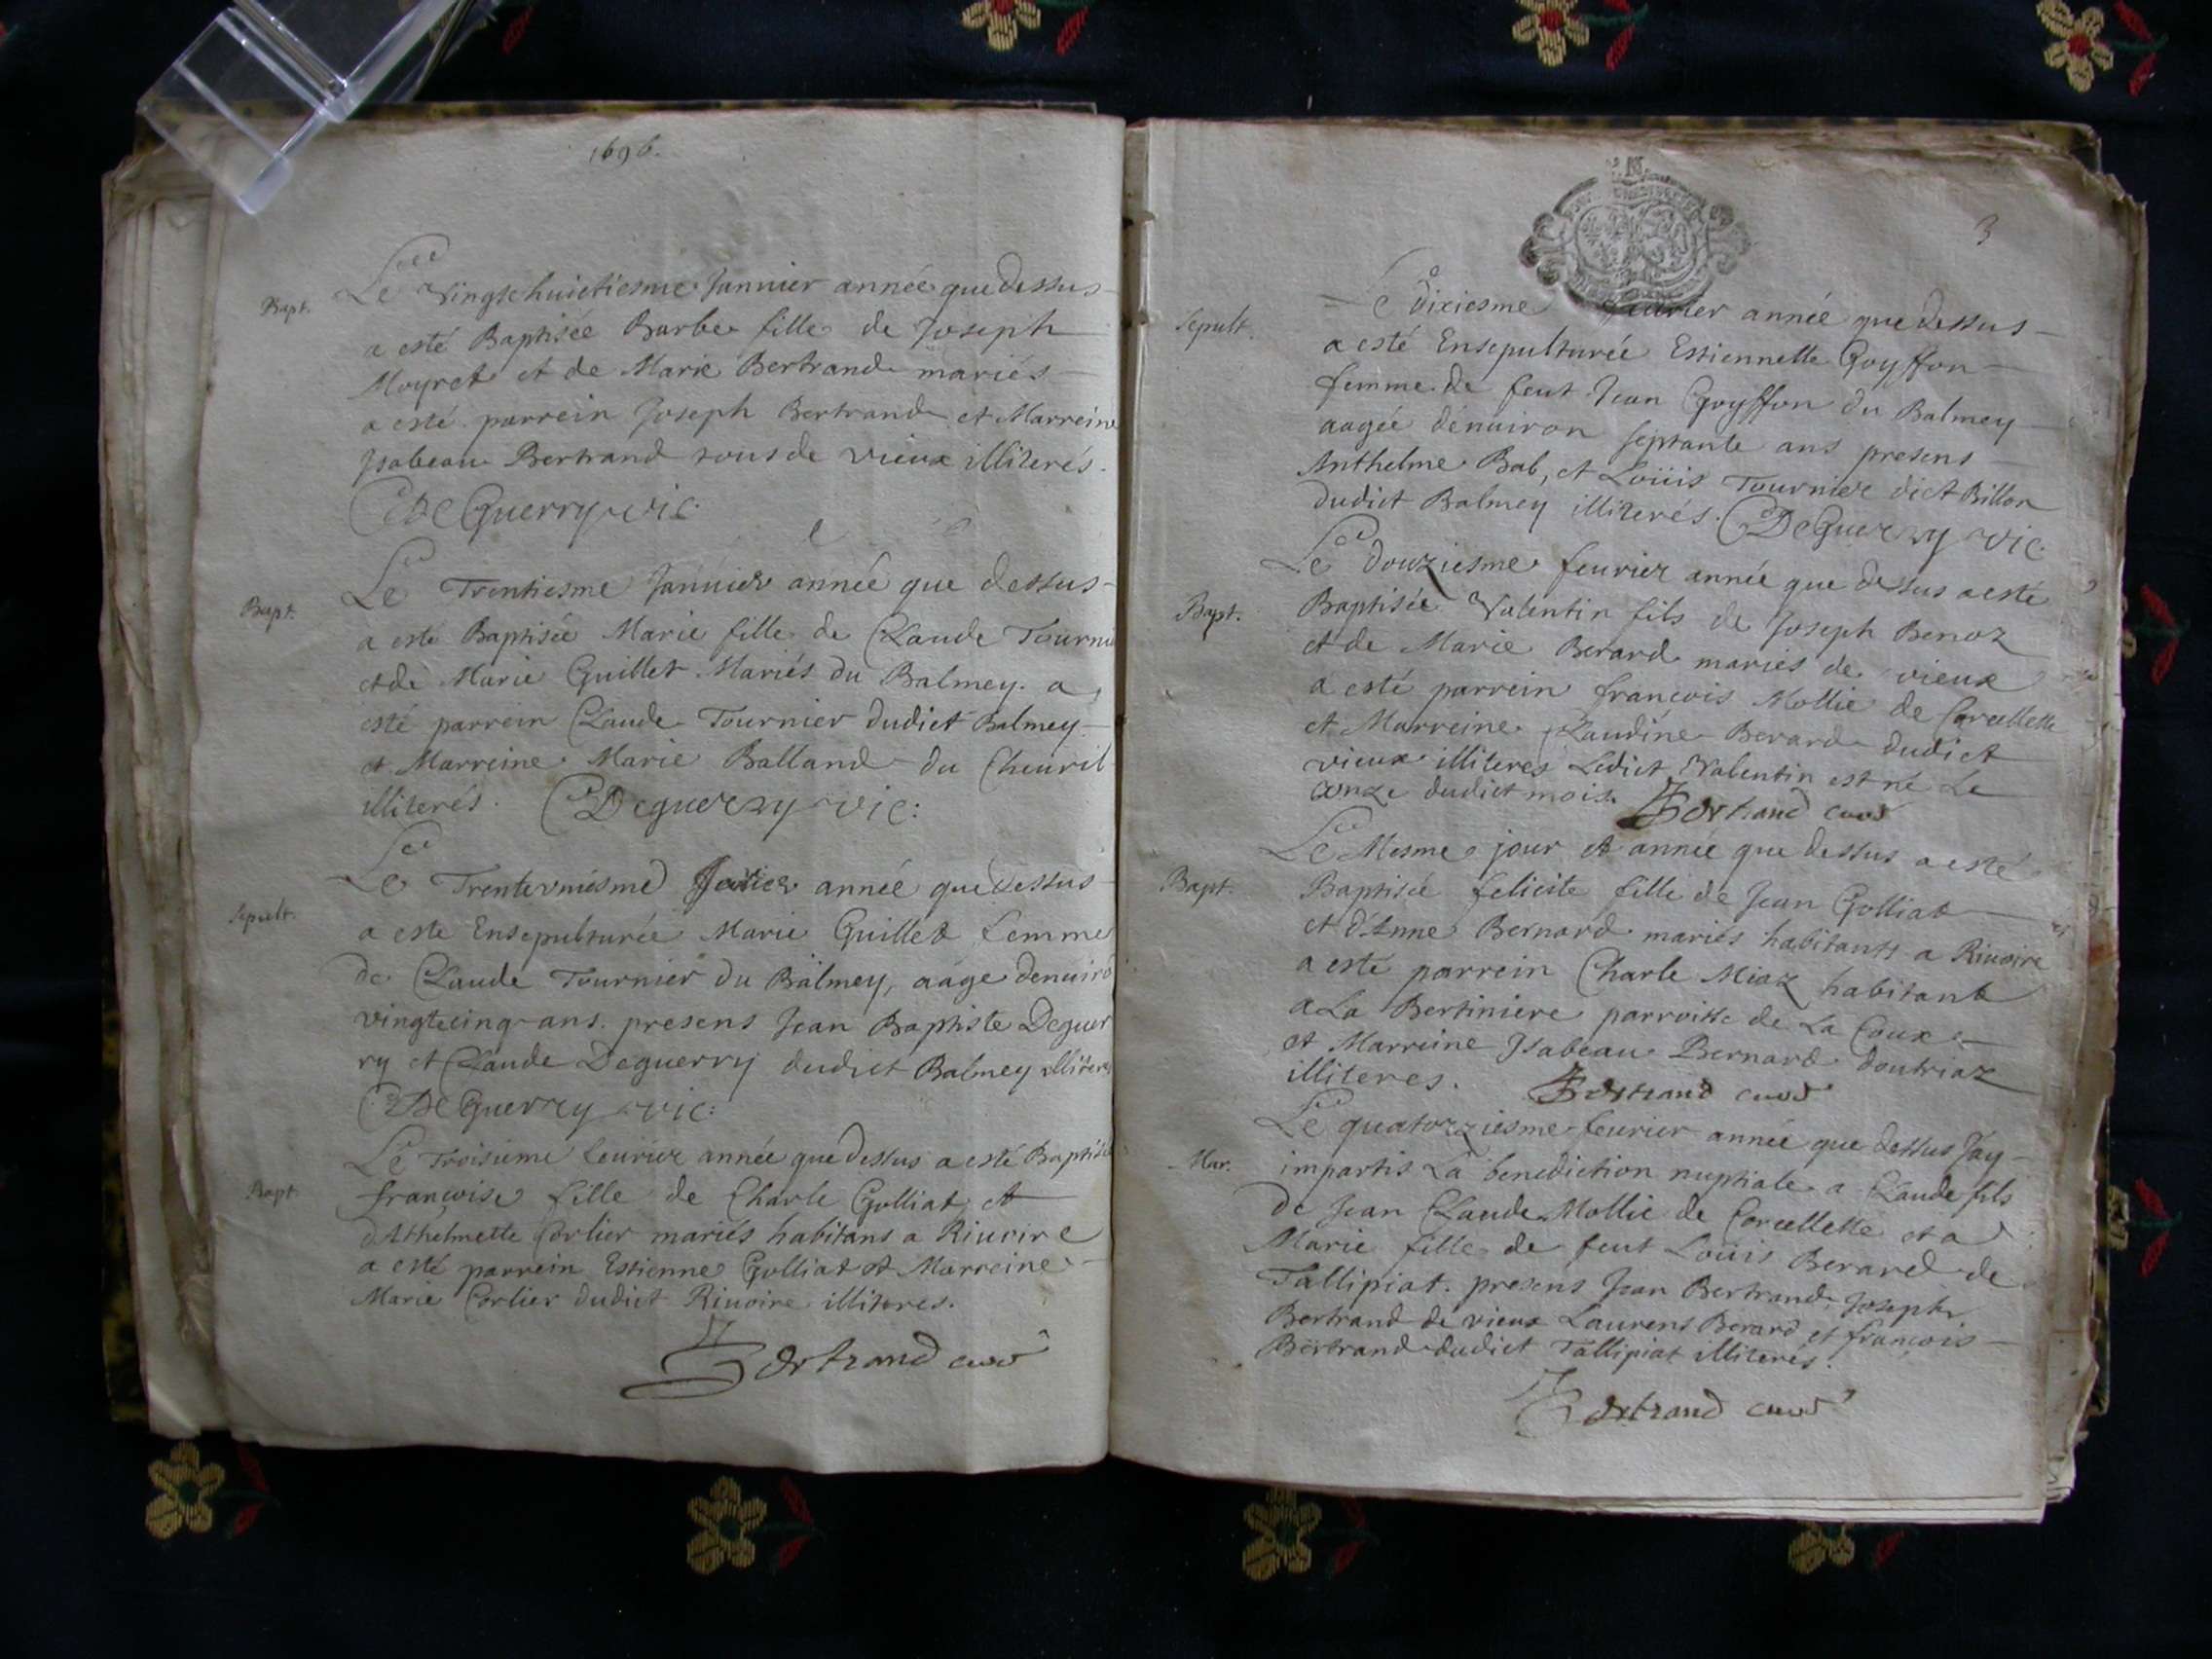 1696.
Bapt.
Le Vingtchuictiesme Januier année que dessus
a esté Baptisée Barbe fille de Joseph
Moyret et de Marie Bertrand mariés
a esté parrein Joseph Bertrand et Marreine
Jsabeau Bertrand tous de vieux illiterés.
DeGuerry vic.
Bapt.
Le Trentiesme Januier année que dessus
a esté Baptisée Marie fille de Claude Tournie
et de Marie Guillet Mariés du Balmey. a
esté parrein Claude Tournier dudict Balmey
et Marreine Marie Balland du Cheuril
illiterés. Deguerry vic:
Sepult.
Le Trenteuniesme année que dessus
a este Ensepulturée Marie Guillet femme
de Claude Tournier du Balmey, aage denuirõ
vingtecinq ans. presens Jean Baptiste Deguer
ry et Claude Deguerry dudict Balmey illiteres
DeGuerry vic:
Bapt.
Le Troisieme feurier année que dessus a esté Baptisée
francoise fille de Charle Golliat et
dAthelmette Corlier mariés habitans a Riuoire
a esté parrein Estienne Golliat et Marreine
Marie Corlier dudict Riuoire illiteres.
Bertrand curé
3
Sepult.
Le dixiesme feurier année que dessus
a esté Ensepulturée Estiennette Goyffon
femme de feut Jean Goyffon du Balmey
aagée dénuiron septante ans presens
Anthelme Bab, et Loüis Tournier dict Billon
dudict Balmey illiterés. DeGuerry vic.
Bapt.
Le douziesme feurier année que dessus a esté
Baptisée Valentin fils de Joseph Benoz
et de Marie Berard mariés de vieux
a esté parrein francois Mollie de Corcellette
et Marreine Claudine Berard dudict
vieux illiteres Ledict Valentin est né Le
onze dudict mois. Bertrand curé
Bapt.
Le Mesme jour et année que dessus a esté
Baptisée felicite fille de Jean Golliat
et d'Anne Bernard mariés habitants a Riuoire
a esté parrein Charle Miaz habitant
a La Bertiniere parroisse de La Coux
et Marreine Jsabeau Bernard doutriaz
illiteres. Bertrand curé
Mar.
Le quatorziesme feurier année que dessus Jáy
impartis La benediction nuptiale a Claude fils
de Jean Claude Mollie de Corcellette et a
Marie fille de feut Loüis Berard de
Tallipiat. presens Jean Bertrand, Joseph
Bertrand de vieux Laurens Berard et francois
Bertrand dudict Tallipiat illiterés.
Bertrand curé